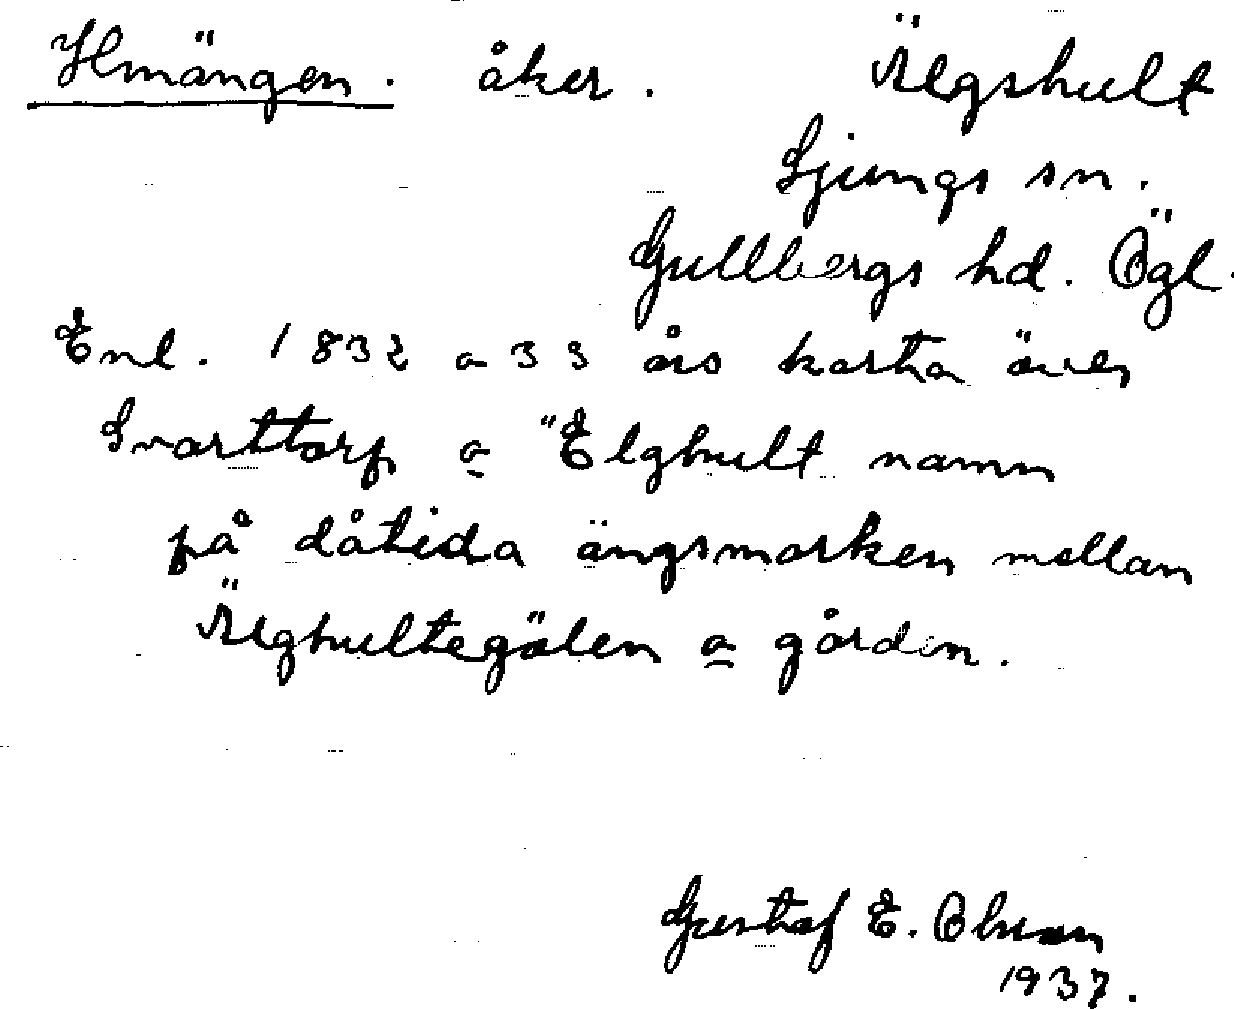 Hmängen. åker. Älgshult
Ljungs sn.
Gullbergs hd. Ögl.
Enl. 1832 a 33 års karta över
Svarttorp a "Elghult namn
på dåtida ängsmarken mellan
Älghultegölen a gården.
Gustaf E. Olsson
1937.